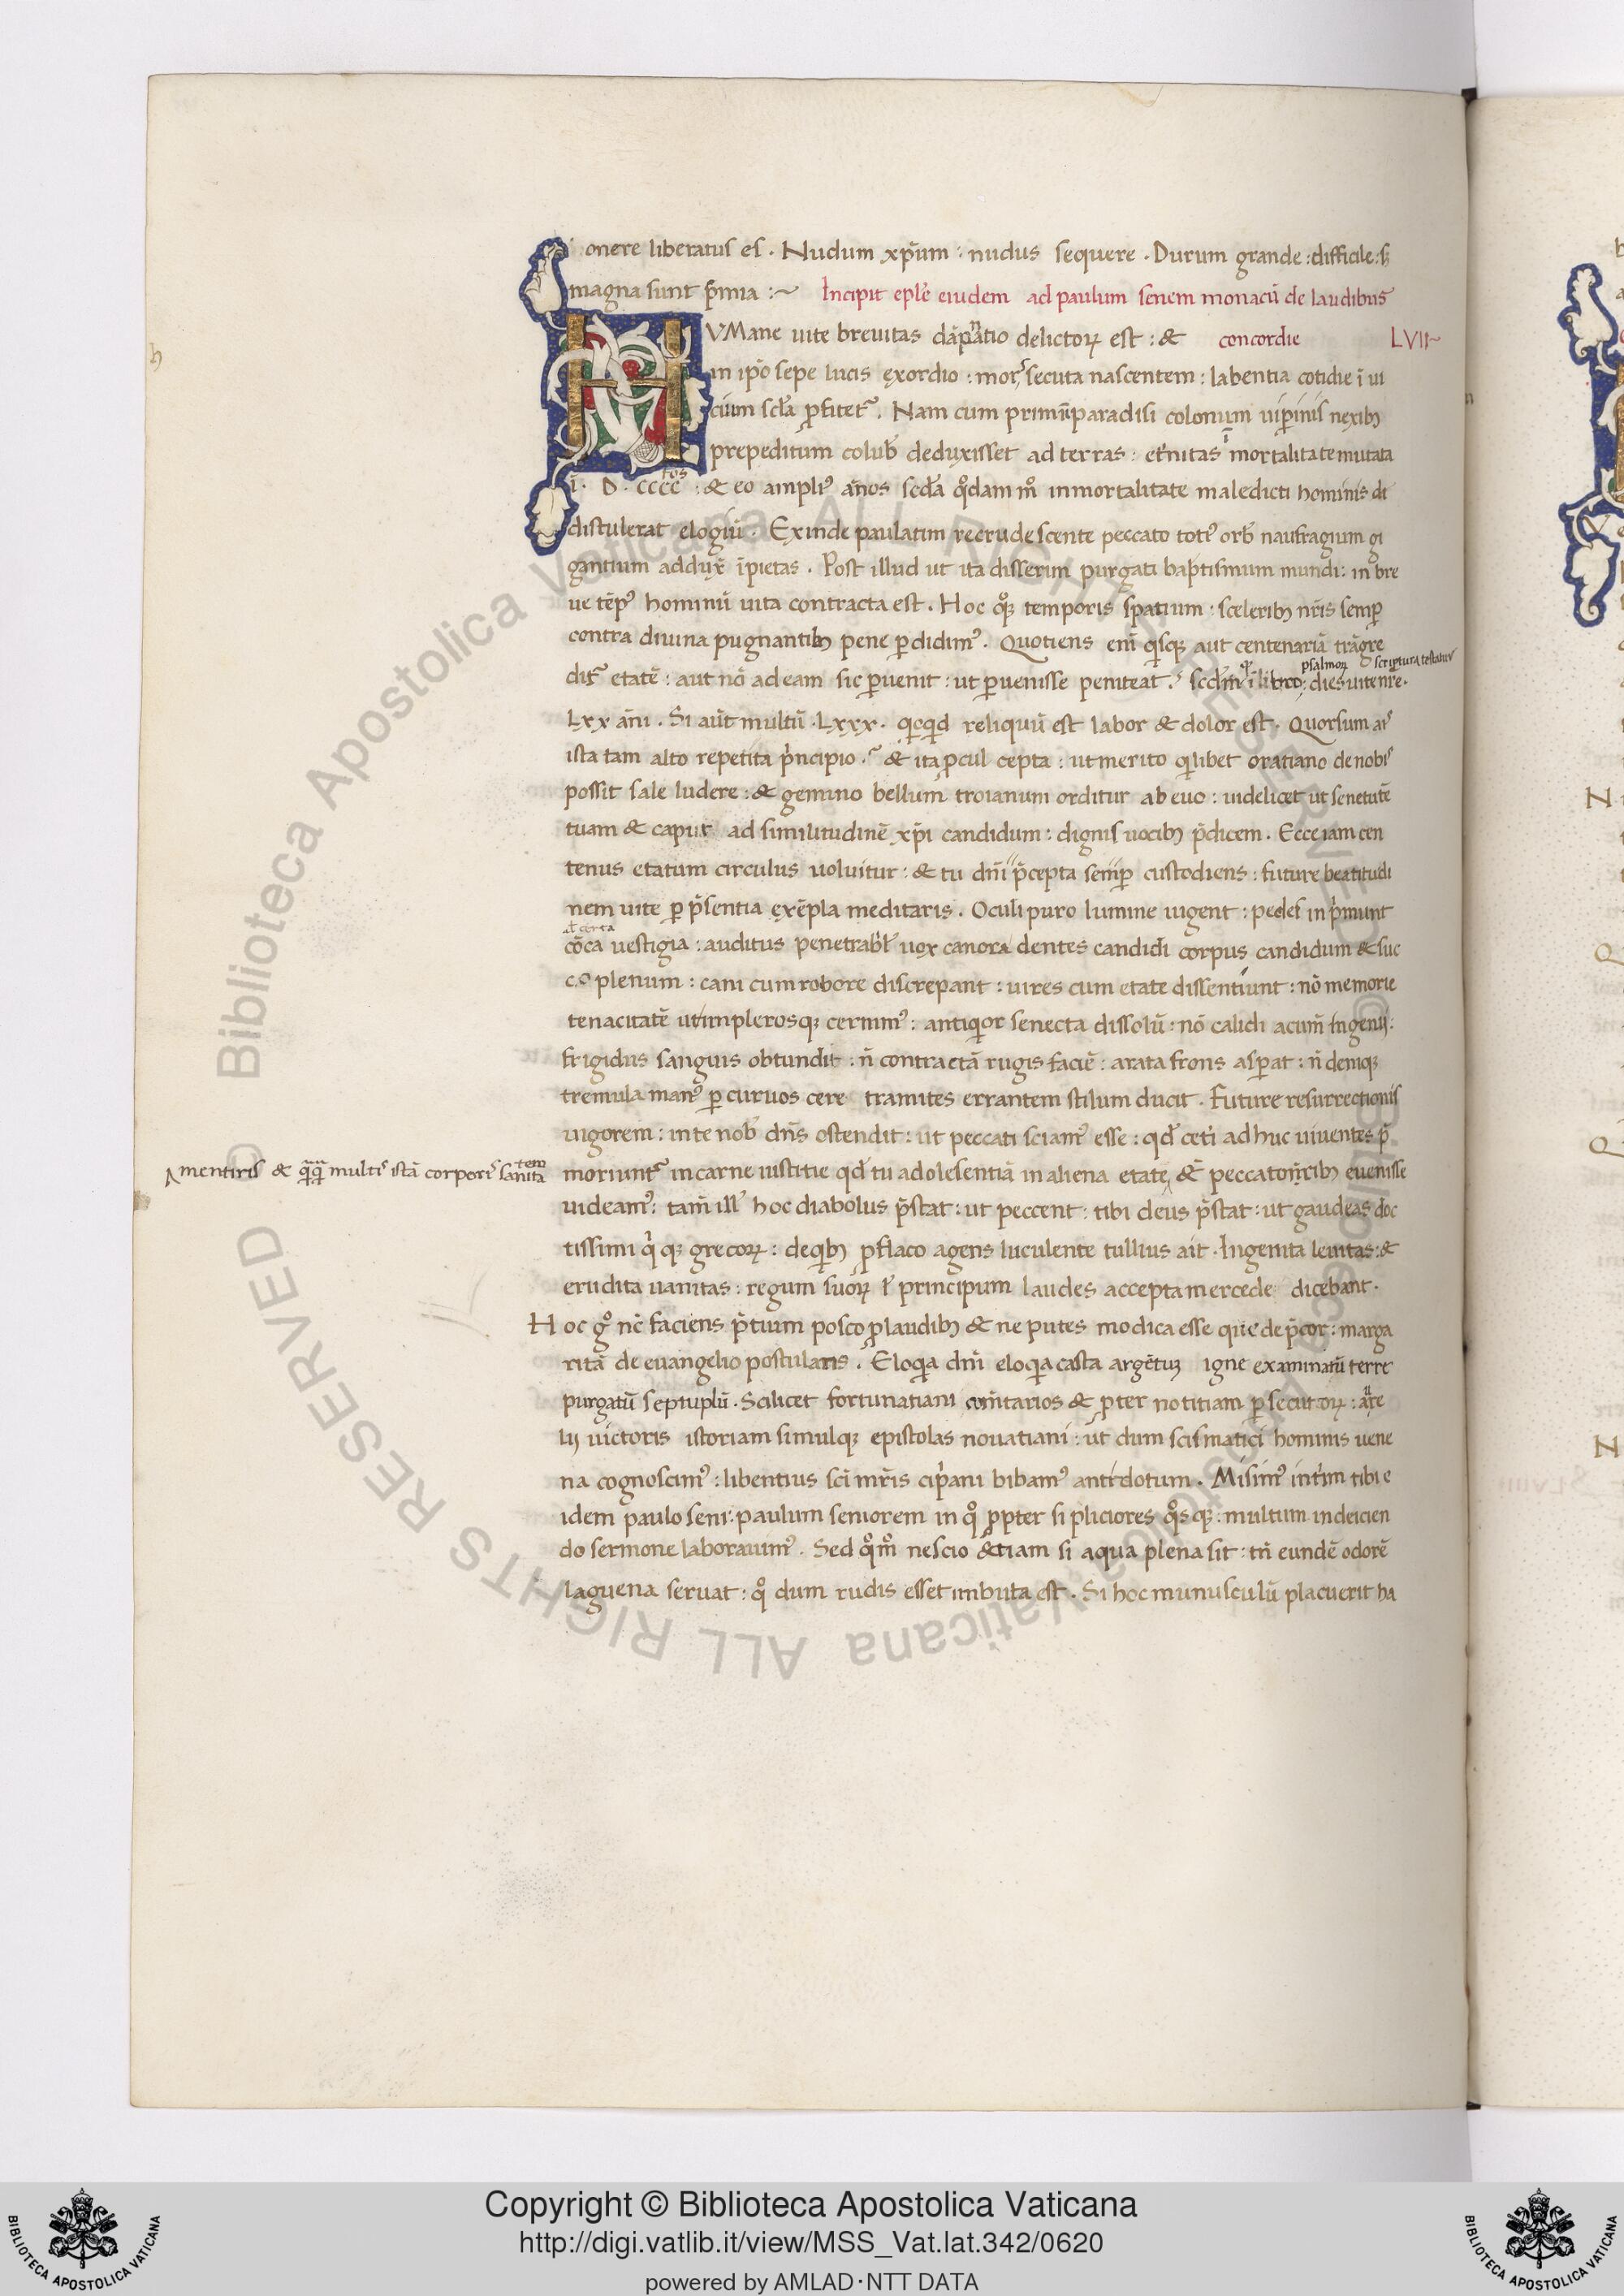 onere liberatus es . Nudum xp̄um : nudus sequere . Durum grande : difficile : s;
magna sunt p̄mia :~ Incipit epl̄e eiusdem ad paulum senem monacū de laudibus
HVMane uite breuitas dāpnatio delictoꝝ est : & concordie LVII~
in ip̄o sepe lucis exordio : mors secuta nascentem : labentia cotidie ī ui
cium scl̄a ꝓfitet᷑ . Nam cum primū paradisi colonum uiꝑinis nexibꝫ
prepeditum colub̄ deduxisset ad terras : et̄nitas ī mortalitate mutata
i . D . cccc tos : & eo ampliꝰ annos secd̄a qͦdam mͦ inmortalitate maledicti hominis di
distulerat elogiū . Exinde paulatim recrudescente peccato totiꝰ orb̄ naufragium gi
gantium addux̄ īpietas . Post illud ut ita disserim purgati baptismum mundi : in bre
ue tēpꝰ hominū uita contracta est . Hoc qͦꝫ temporis spatium : sceleribꝫ nr̄is semꝑ
contra diuina pugnantibꝫ pene ꝑdidimꝰ . Quotiens enī qisqꝫ aut centenariā trāsgre
dit᷑ etatē : aut nō ad eam sic ꝑuenit : ut ꝑuenisse peniteat . scd̄m qͥ ī libro psalmoꝝ scriptura testatur : dies uite nr̄e .
Lxx ānī . Si aūt multū . Lxxx . qicqid reliquū est labor & dolor est . Quorsum ais
ista tam alto repetita p̄ncipio . & ita ꝓcul cepta : ut merito qilibet oratiano de nobis
possit sale ludere : & gemino bellum troianum orditur ab euo : uidelicet ut senetutē
tuam & caput ad similitudinē xp̄i candidum : dignis uocibꝫ p̄dicem . Ecce iam cen
tenus etatum circulus uoluitur : & tu dn̄i p̄cepta semꝑ custodiens : future beatitudi
nem uite ꝑ p̄sentia exēpla meditaris . Oculi puro lumine uigent : pedes in p̄munt
al̄ certa
cōca uestigia : auditus penetrabl̄ uox canora dentes candidi corpus candidum & suc
co plenum : cani cum robore discrepant : uires cum etate dissentiunt : nō memorie
tenacitatē ut in plerosqꝫ cernimꝰ : antiqior senecta dissolū : nō calidi acum̄ Ingenii :
frigidus sanguis obtundit : n̄ contractā rugis faciē : arata frons asꝑat : n̄ deniqꝫ
tremula manꝰ ꝑ curuos cere tramites errantem stilum ducit . Future resurrectionis
uigorem : in te nob̄ dn̄s ostendit : ut peccati sciamꝰ esse : qd̄ cet̄i ad huc uiuentes p̄
^mentiris & qāqā multis istā corporis sanitatem
moriunt᷑ in carne iustitie qd̄ tu adolesentiā in aliena etate^ & peccatoribꝫ euenisse
uideamꝰ : tam̄ ill̄ hoc diabolus p̄stat : ut peccent : tibi deus p̄stat : ut gaudeas doc
tissimi qͥqꝫ grecoꝝ : de qibꝫ ꝓ flaco agens luculente tullius ait . Ingenita leuitas : &
erudita uanitas : regum suoꝝ l̄ principum laudes accepta mercede dicebant .
Hoc gͦ nc̄ faciens p̄tium posco ꝓ laudibꝫ & ne putes modica esse que dep̄cor : marga
ritā de euangelio postularis . Eloqia dn̄i eloqia casta argētuꝫ igne examinatū terre
purgatū septuplū . Scilicet fortunatiani com̄tarios & ꝓpter notitiam ꝑsecutoꝝ : aure
lij uictoris istoriam simulqꝫ epistolas nouatiani : ut dum scismatici hominis uene
na cognoscimꝰ : libentius sc̄i mr̄is cip̄ani bibamꝰ antidotum . Misimꝰ inťim tibi e
idem paulo seni : paulum seniorem in qͦ ꝓpter sipliciores qͦsqꝫ : multum in deicien
do sermone laborauimꝰ . Sed qͦmͦ nescio &tiam si aqua plena sit : tn̄ eundē odorē
laguena seruat : qͦ dum rudis esset imbuta est . Si hoc munusculū placuerit ha
© Biblioteca Apostolica Vaticana ALL RIGHTS RESERVED
© Biblioteca Apostolica Vaticana ALL RIGHTS RESERVED
Copyright © Biblioteca Apostolica Vaticana
http://digi.vatlib.it/view/MSS_Vat.lat.342/0620
powered by AMLAD·NTT DATA
BIBLIOTECA APOSTOLICA VATICANA
BIBLIOTECA APOSTOLICA VATICANA